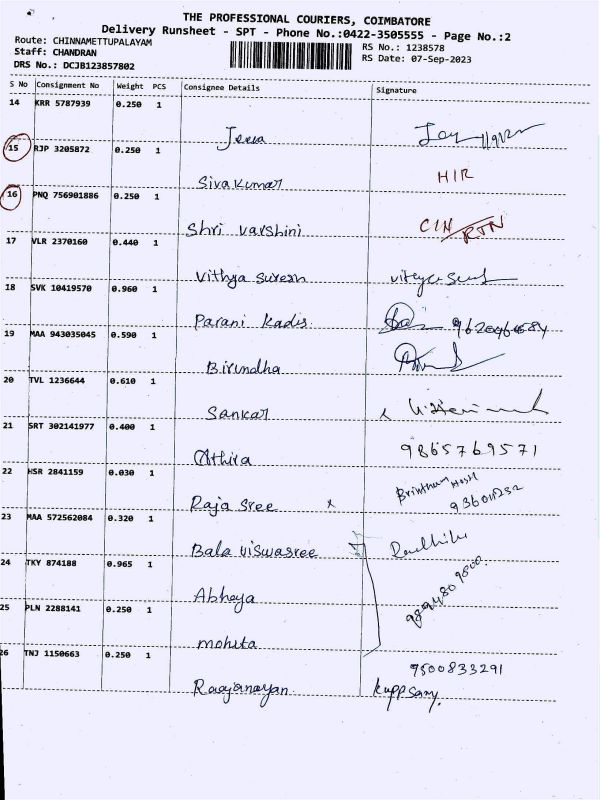 THE PROFESSIONAL COURIERS, COIMBATORE
Delivery Runsheet - SPT - Phone No.:0422-3505555 - Page No.:2
Route: CHINNAMETTUPALAYAM
Staff: CHANDRAN
DRS No.: DCJB123857802
RS No.: 1238578
RS Date: 07-Sep-2023
S No Consignment No Weight PCS Consignee Details Signature
14 KRR 5787939 0.250 1
Jeeva
15 RJP 3205872 0.250 1
Sivakumar HIR
16 PNQ 756901886 0.250 1
Shri varshini CIN/RTN
17 VLR 2370160 0.440 1
Vithya Suresh
18 SVK 10419570 0.960 1
Parani Kadis
19 MAA 943035045 0.590 1
Birundha
20 TVL 1236644 0.610 1
Sankar
21 SRT 302141977 0.400 1
Athira 9865769571
22 HSR 2841159 0.030 1
Raja Sree x
23 MAA 572562084 0.320 1
Bala viswasree
24 TKY 874188 0.965 1
Abhaya
25 PLN 2288141 0.250 1
mohita
26 TNJ 1150663 0.250 1
9500833291
Kuppsamy.